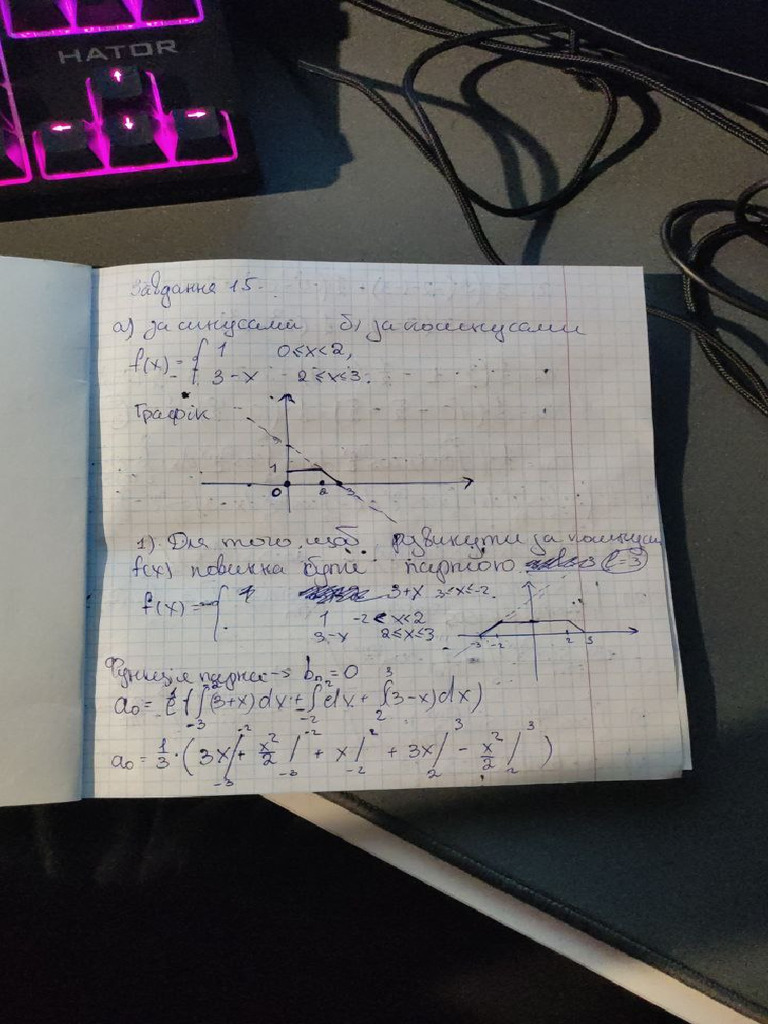 HATOR
Завдання 15.
а) за синусами, б) за косинусами
f(x) = { 1 0≤x<2,
3-x 2≤x≤3.
Графік
1
0 2 3
1) Для того, щоб розвинути за косинусами
f(x) повинна бути парною l=3
f(x) = { 3+x 3≤x≤-2.
1 -2<x<2
3-x 2≤x≤3
-3 -2 2 3
Функція парна → bn=0
a₀ = 1/l (∫₋₃⁻² (3+x)dx + ∫₋₂² dx + ∫₂³ (3-x)dx)
a₀ = 1/3 · (3x|₋₃⁻² + x²/2|₋₃⁻² + x|₋₂² + 3x|₂³ - x²/2|₂³)